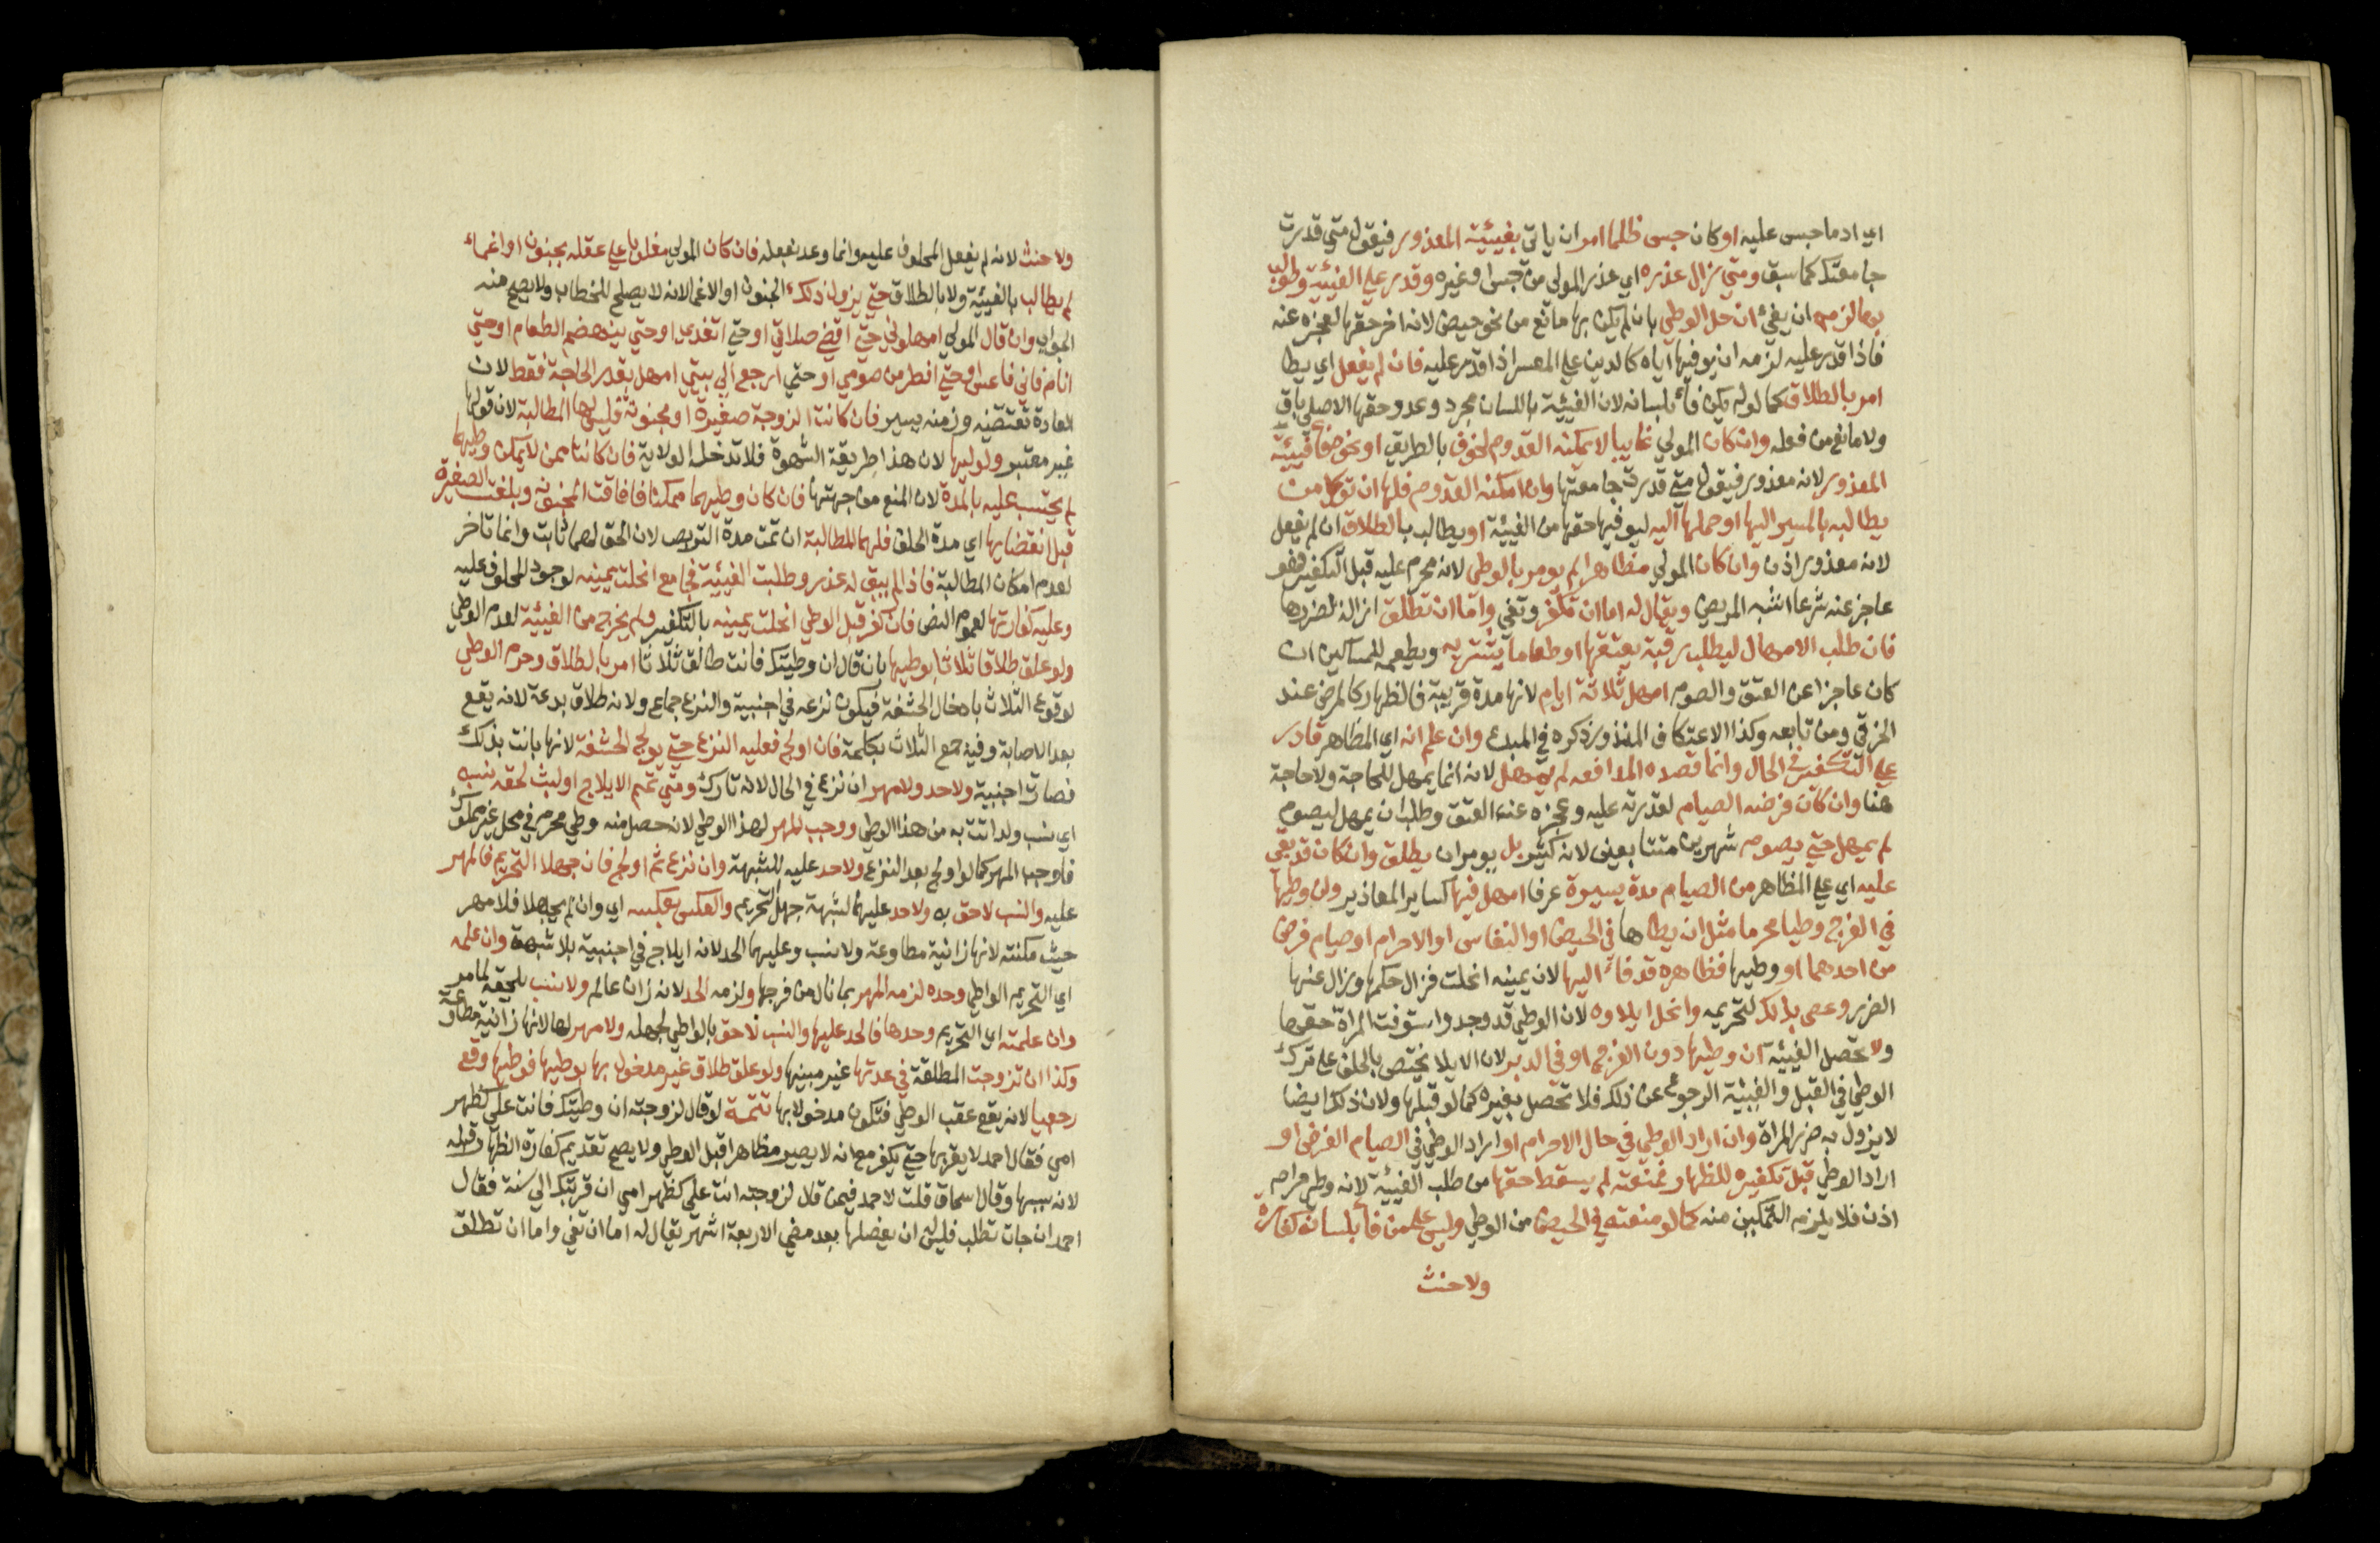 اي ادما حبس عليه او كان حبس ظلما امر ان ياتي بفيئية المعذور فيقول متي قدرت
جامعتك كما سبق ومتي زال عذره اي عذر المولي من حبس او غيره وقدر علي الفيئية وطولب
بها لزمه ان يفئ ان حل الوطي بان لم يكن بها مانع من نحو حيض لانه اخر حقها لعجزه عنه
فاذا قدر عليه لزمه ان يوفيها اياه كالدين علي المعسر اذا قدر عليه فان لم يفعل اي يطا
امر بالطلاق كما لو لم يكن فاء بلسانه لان الفيئية باللسان مجرد وعد وحقها الاصلي باق
ولا مانع من فعله وان كان المولي غايبا لا يمكنه القدوم لخوف بالطريق او نحو ففيئية
المعذور لانه معذور فيقول متي قدرت جامعتها وان امكنه القدوم فلها ان توكل من
يطالبه بالمسير اليها او حملها اليه ليوفيها حقها من الفيئية او يطالب بالطلاق ان لم يفعل
لانه معذور اذن وان كان المولي مظاهرا لم يومر بالوطي لانه محرم عليه قبل التكفير فهو
عاجز عنه شرعا اشبه المريض ويقال له اما ان تكفر وتفي واما ان تطلق ازالة لضررها
فان طلب الامهال ليطلب رقبة يعتقها او طعاما يشتريه ويطعمه للمساكين ان
كان عاجزا عن العتق والصوم امهل ثلاثة ايام لانها مدة قريبة فالظهار كالمرض عند
الخرقي ومن تابعه وكذا الاعتكاف المنذور ذكره في المبدع وان علم انه اي المظاهر قادر
علي التكفير في الحال وانما قصده المدافعه لم يمهل لانه انما يمهل للحاجة ولا حاجة
هنا وان كان فرضه الصيام لقدرته عليه وعجزه عن العتق وطلب ان يمهل ليصوم
لم يمهل حتي يصوم شهرين متتابعين لانه كثير بل يومر ان يطلق وان كان قد بقي
عليه اي علي المظاهر من الصيام مدة يسيرة عرفا امهل فيها كساير المعاذير وان وطيها
في الفرج وطيا محرما مثل ان يطاها في الحيض او النفاس او الاحرام او صيام فرض
من احدهما او وطيها فظاهره قد فاء اليها لان يمينه انحلت فزال حكمها وزال عنها
الضرر وعصي بذلك لتحريمه وانحل ايلاوه لان الوطي قد وجد واستوفت المراة حقها
ولا تحصل الفيئية ان وطيها دون الفرج او في الدبر لان الايلا يختص بالحلف علي ترك
الوطي في القبل والفيئية الرجوع عن ذلك فلا تحصل بغيره كما لو قبلها ولان ذلك ايضا
لا يزول به ضرر المراة وان اراد الوطي في حال الاحرام او اراد الوطي في الصيام الفرض او
اراد الوطي قبل تكفيره للظهار فمنعته لم يسقط حقها من طلب الفيئية لانه وطي حرام
اذن فلا يلزمه التمكين منه كما لو منعته في الحيض من الوطي وليس علي من فاء بلسانه كفارة
ولا حنث
ولا حنث لانه لم يفعل المحلوف عليه وانما وعد بفعله فان كان المولي مغلوبا علي عقله بجنون او اغماء
لم يطالب بالفيئية ولا بالطلاق حتي يزول ذلك الجنون او الاغما لانه لا يصلح للخطاب ولا يصح منه
الجواب وان قال المولي امهلوني حتي اقضي صلاتي او حتي اتغدي او حتي ينهضم الطعام او حتي
انام فاني ناعس او حتي افطر من صومي او حتي ارجع الي بيتي امهل بقدر الحاجة فقط لان
العادة تقتضيه وزمنه يسير فان كانت الزوجة صغيرة او مجنونة فليس لها المطالبة لان قولها
غير معتبر ولا لوليها لان هذا طريقة الشهوة فلا تدخله الولاية فان كانتا ممن لا يمكن وطيهما
لم يحتسب عليه بالمدة لان المنع من جهتها فان كان وطيهما ممكنا فافاقت المجنونة وبلغت الصغيرة
قبل انقضايها اي مدة الحلف فلهما المطالبة ان تمت مدة التربص لان الحق لهما ثابت وانما تاخر
لعدم امكان المطالبة فاذا لم يبق له عذر وطلبت الفيئية فجامع انحلت يمينه لوجود المحلوف عليه
وعليه كفارتها لعموم النص فان كفر قبل الوطي انحلت يمينه بالتكفير ولم يخرج من الفيئية لعدم الوطي
ولو علق طلاقا ثلاثا بوطيها بان قال ان وطيتك فانت طالق ثلاثا امر بالطلاق وحرم الوطي
لوقوع الثلاث بادخال الحشفة فيكون نزعه في اجنبية والنزع جماع ولانه طلاق بدعة لانه يقع
بعد الاصابة وفيه جمع الثلاث بكلمة فان اولج فعليه النزع حتي يولج الحشفة لانها بانت بذلك
فصارت اجنبية ولا حد ولا مهر ان نزع في الحال لانه تارك ومتي تمم الايلاج او لبث لحقه نسبه
اي نسب ولد اتت به من هذا الوطي ووجب المهر لهذا الوطي لانه حصل منه وطي محرم في محل غير مملوك
فاوجب المهر كما لو اولج بعد النزع ولا حد عليه للشبهة وان نزع ثم اولج فان جهلا التحريم فالمهر
عليه والنسب لاحق به ولا حد عليهما لشبهة جهل التحريم والعكس بعكسه اي وان لم يجهلا فلا مهر
حيث مكنته لانها زانية مطاوعة ولا نسب وعليهما الحد لانه ايلاج في اجنبية بلا شبهة وان علمه
اي التحريم الواطي وحده لزمه المهر بما نال من فرجها ولزمه الحد لانه زان عالم ولا نسب يلحقه لما مر
وان علمته اي التحريم وحدها فالحد عليها والنسب لاحق بالواطي لجهله ولا مهر لها لانها زانية مطاوعة
وكذا ان تزوجت المطلقة في عدتها غير مبينها ولو علق طلاق غير مدخول بها بوطيها فوطيها وقع
رجعيا لانه يقع عقب الوطي فتكون مدخولا بها تتمة لو قال لزوجته ان وطيتك فانت علي كظهر
امي فقال احمد لا يقربها حتي يكفر مع انه لا يصير مظاهرا قبل الوطي ولا يصح تقديم كفارة الظهار قبله
لانه سببها وقال اسحاق قلت لاحمد فيمن قال لزوجته انت علي كظهر امي ان قربتك الي سنة فقال
احمد ان جات تطلب فليس له ان يعضلها بعد مضي الاربعة اشهر يقال له اما ان تفي واما ان تطلق